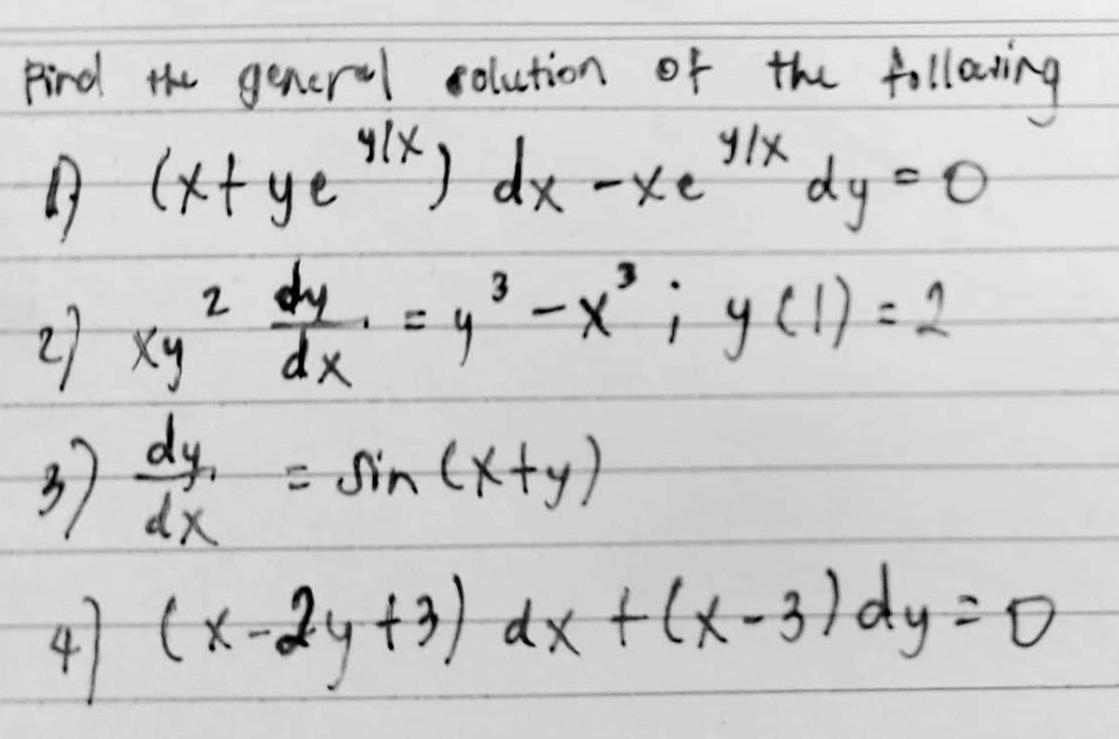 Find the general solution of the following
1) (x+ye^{y/x}) dx -xe^{y/x} dy = 0
2) xy^2 dy/dx = y^3 - x^3 ; y(1) = 2
3) dy/dx = sin (x+y)
4) (x-2y+3) dx + (x-3) dy = 0